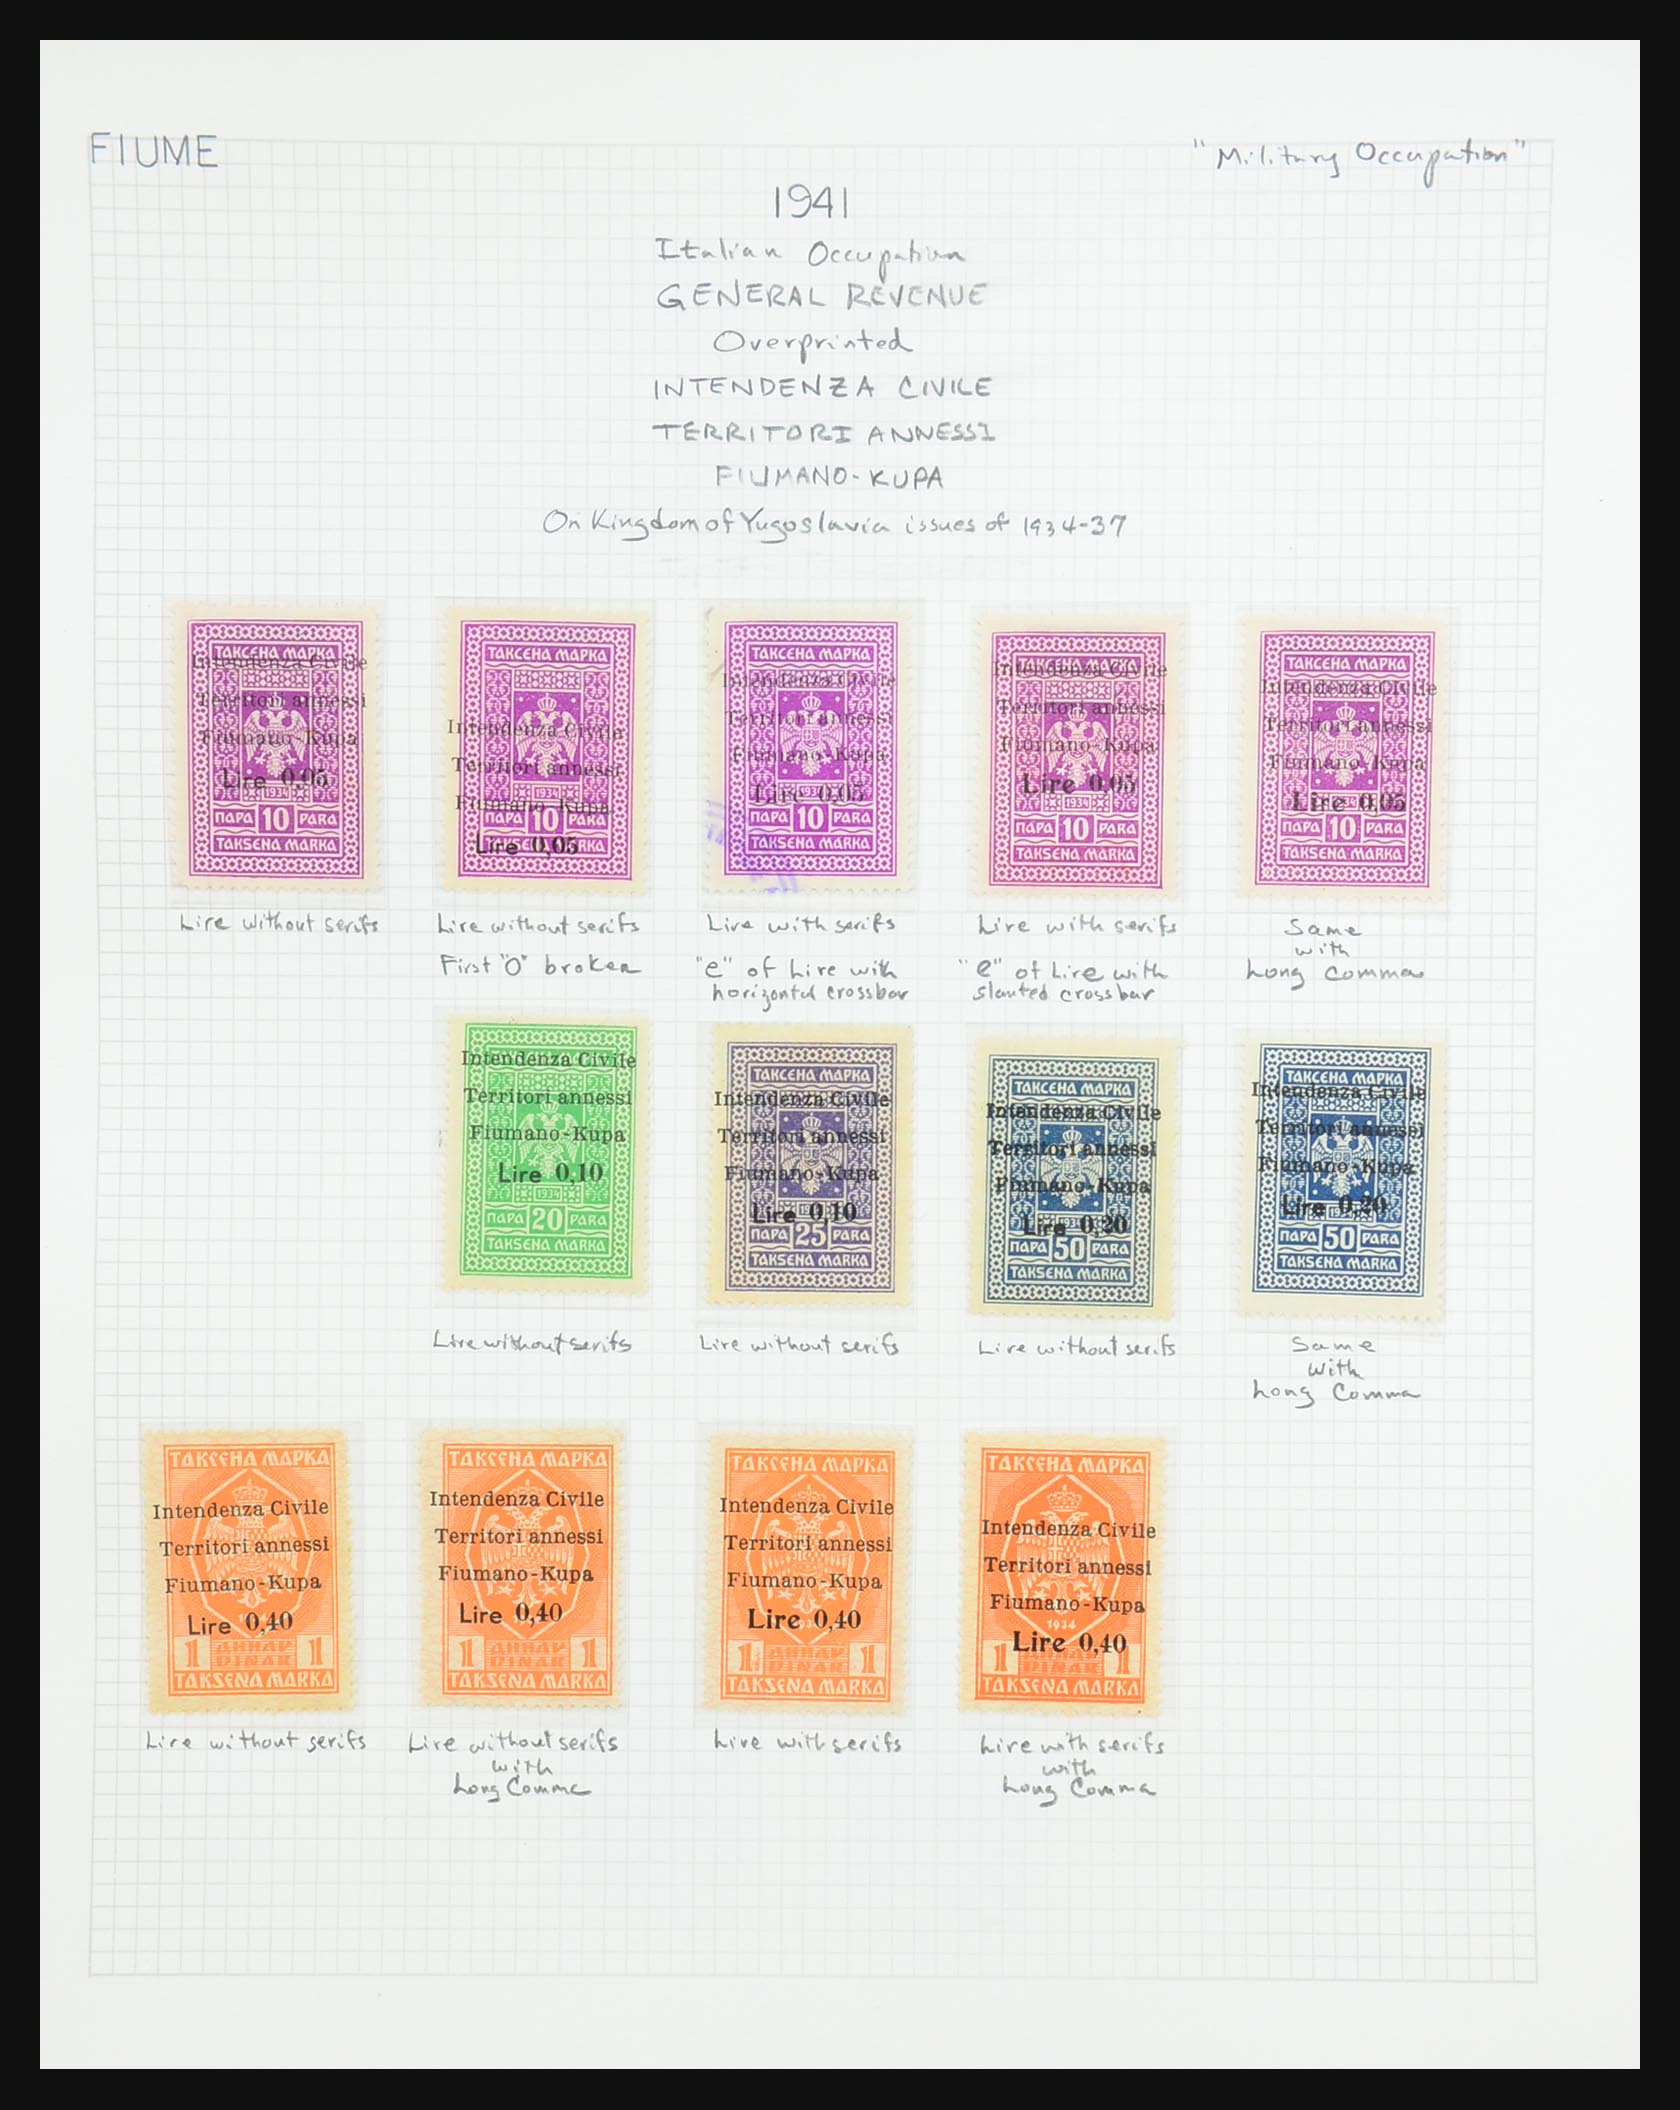 FIUME
"Military Occupation"
1941
Italian Occupation
GENERAL REVENUE
Overprinted
INTENDENZA CIVILE
TERRITORI ANNESSI
FIUMANO-KUPA
On Kingdom of Yugoslavia issues of 1934-37
ТАКСЕНА МАРКА
Intendenza Civile
Territori annessi
Fiumano-Kupa
Lire 0,05
1934
ПАРА 10 PARA
TAKSENA MARKA
ТАКСЕНА МАРКА
Intendenza Civile
Territori annessi
1934
Fiumano-Kupa
ПАРА 10 PARA
Lire 0,05
TAKSENA MARKA
ТАКСЕНА МАРКА
Intendenza Civile
Territori annessi
Fiumano-Kupa
Lire 0,05
ПАРА 10 PARA
TAKSENA MARKA
ТАКСЕНА МАРКА
Intendenza Civile
Territori annessi
Fiumano-Kupa
Lire 0,05
1934
ПАРА 10 PARA
TAKSENA MARKA
ТАКСЕНА МАРКА
Intendenza Civile
Territori annessi
Fiumano-Kupa
Lire 0,05
ПАРА 10 PARA
TAKSENA MARKA
Lire without serifs
Lire without serifs
First "0" broken
Lire with serifs
"e" of Lire with
horizontal crossbar
Lire with serifs
"e" of Lire with
slanted crossbar
Same
with
Long comma
Intendenza Civile
Territori annessi
Fiumano-Kupa
Lire 0,10
1934
ПАРА 20 PARA
TAKSENA MARKA
ТАКСЕНА МАРКА
Intendenza Civile
Territori annessi
Fiumano-Kupa
Lire 0,10
ПАРА 25 PARA
TAKSENA MARKA
ТАКСЕНА МАРКА
Intendenza Civile
Territori annessi
Fiumano-Kupa
Lire 0,20
ПАРА 50 PARA
TAKSENA MARKA
ТАКСЕНА МАРКА
Intendenza Civile
Territori annessi
Fiumano-Kupa
Lire 0,20
ПАРА 50 PARA
TAKSENA MARKA
Lire without serifs
Lire without serifs
Lire without serifs
Same
with
Long Comma
ТАКСЕНА МАРКА
Intendenza Civile
Territori annessi
Fiumano-Kupa
Lire 0,40
1 ДИНАР 1
DINAR
TAKSENA MARKA
ТАКСЕНА МАРКА
Intendenza Civile
Territori annessi
Fiumano-Kupa
Lire 0,40
1 ДИНАР 1
DINAR
TAKSENA MARKA
ТАКСЕНА МАРКА
Intendenza Civile
Territori annessi
Fiumano-Kupa
Lire 0,40
1 ДИНАР 1
DINAR
TAKSENA MARKA
ТАКСЕНА МАРКА
Intendenza Civile
Territori annessi
Fiumano-Kupa
1934
Lire 0,40
1 ДИНАР 1
DINAR
TAKSENA MARKA
Lire without serifs
Lire without serifs
with
Long Comma
Lire with serifs
Lire with serifs
with
Long Comma